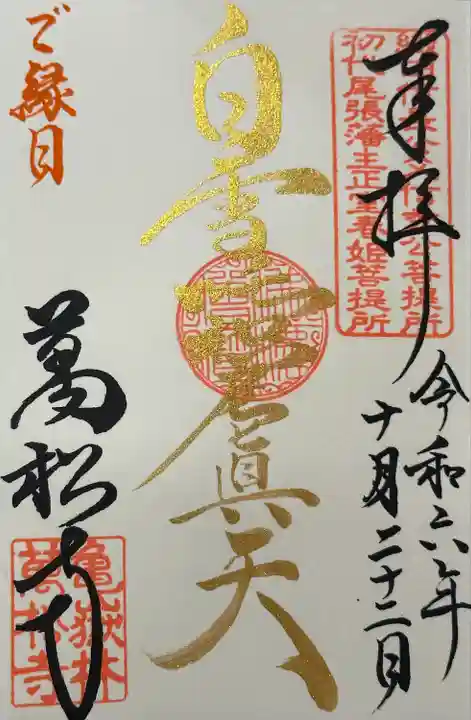 奉拝
初代尾張藩主正室春姫菩提所
令和六年
十月二十二日
白雪吒枳眞天
ご縁日
萬松寺
亀嶽林
萬松寺